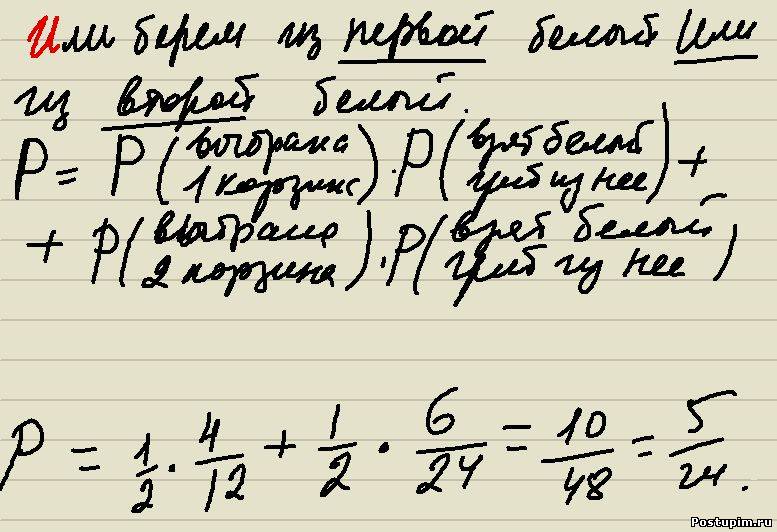 Или берем из первой белый Или
из второй белый.
P = P (выбрана 1 корзина) · P (взят белый гриб из нее) +
+ P (выбрана 2 корзина) · P (взят белый гриб из нее)
P = 1/2 · 4/12 + 1/2 · 6/24 = 10/48 = 5/24.
Postupim.ru